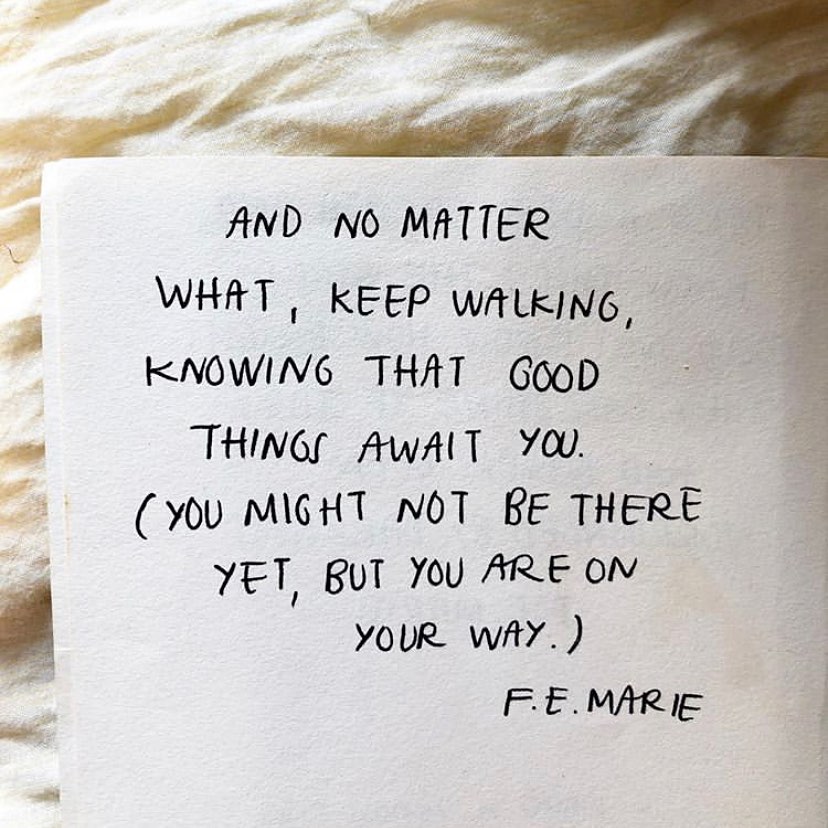 AND NO MATTER
WHAT, KEEP WALKING,
KNOWING THAT GOOD
THINGS AWAIT YOU.
(YOU MIGHT NOT BE THERE
YET, BUT YOU ARE ON
YOUR WAY.)
F.E. MARIE